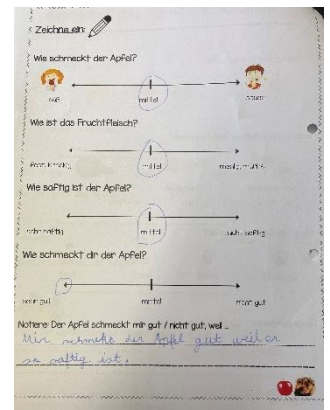 Zeichne ein:
Wie schmeckt der Apfel?
süß mittel sauer
Wie ist das Fruchtfleisch?
fest, knackig mittel mehlig, mürbe
Wie saftig ist der Apfel?
sehr saftig mittel nicht saftig
Wie schmeckt dir der Apfel?
sehr gut mittel nicht gut
Notiere: Der Apfel schmeckt mir gut / nicht gut, weil ...
Mir schmekt der Apfel gut weil er
so saftig ist.